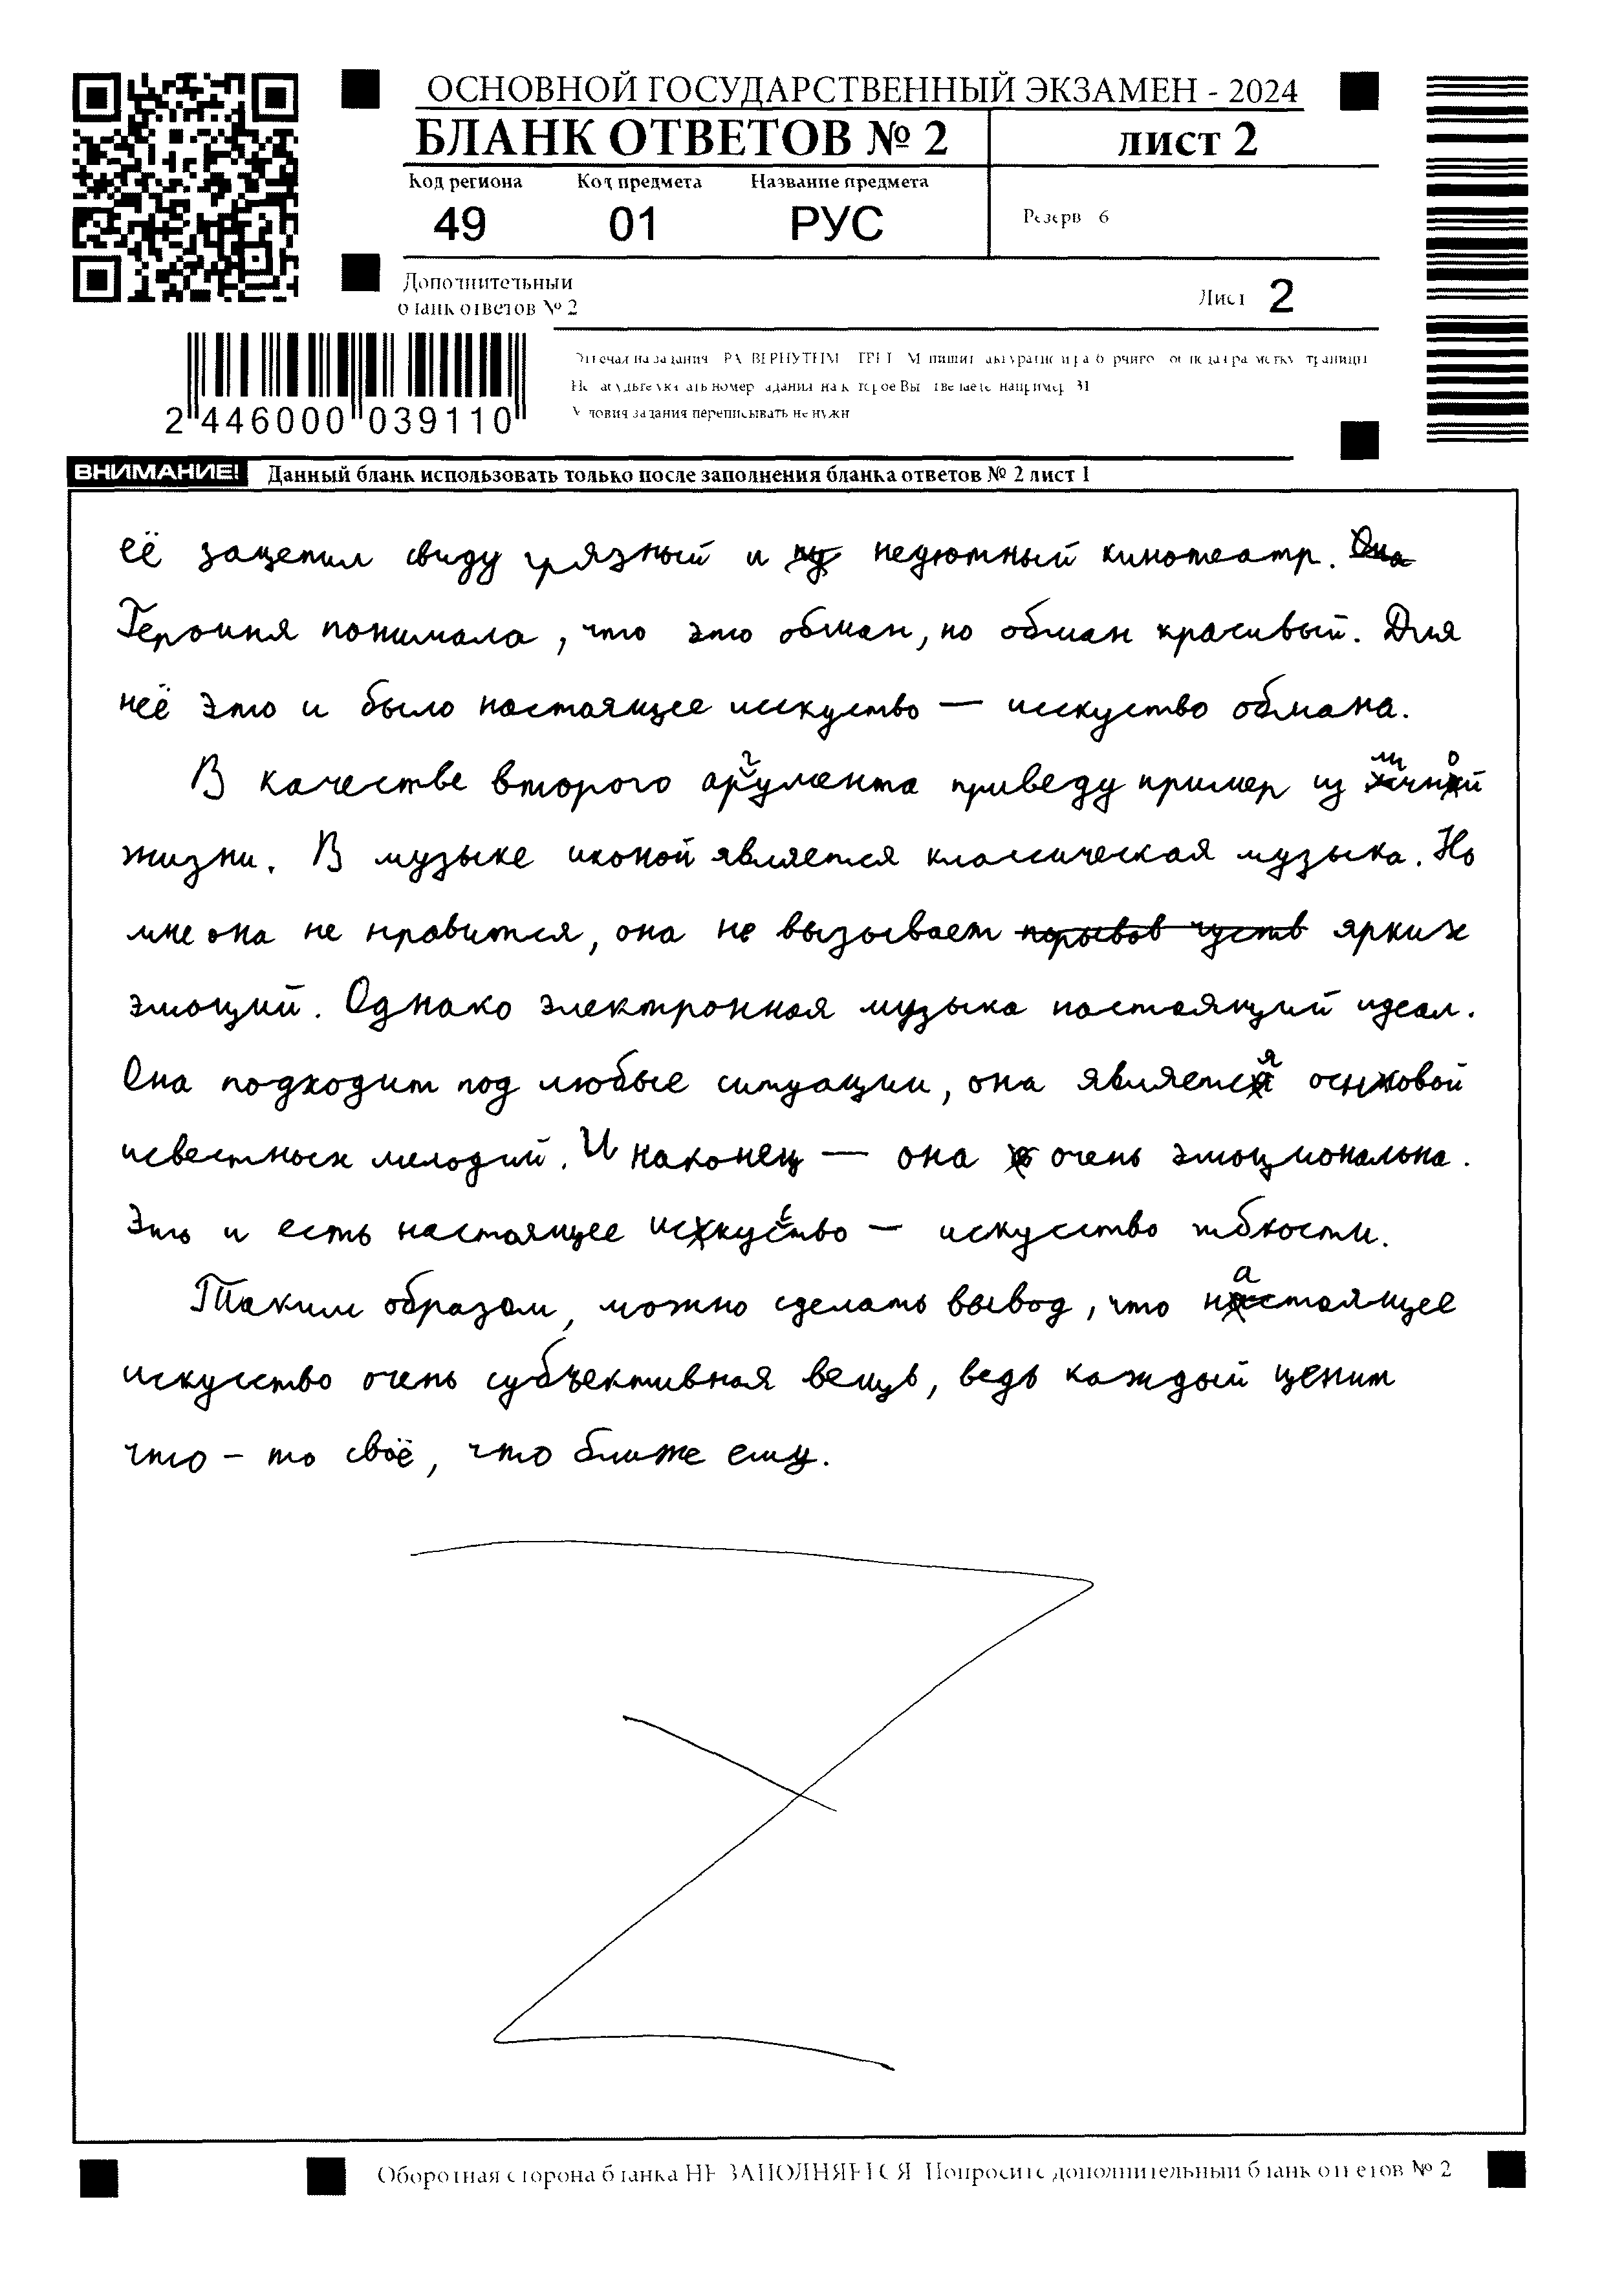 ОСНОВНОЙ ГОСУДАРСТВЕННЫЙ ЭКЗАМЕН - 2024
БЛАНК ОТВЕТОВ № 2 лист 2
Код региона Код предмета Название предмета
49 01 РУС Резерв 6
Дополнительный
бланк ответов № 2
Лист 2
2 446000 039110
Условия задания переписывать не нужн
ВНИМАНИЕ! Данный бланк использовать только после заполнения бланка ответов № 2 лист 1
её зацепил свиду грязный и недютный кинотеатр.
Героиня понимала, что это обман, но обман красивый. Для
неё это и было настоящее искуство — искуство обмана.
В качестве второго аргумента приведу пример из личной
жизни. В музыке иконой является классическая музыка. Но
мне она не нравится, она не вызывает ярких
эмоций. Однако электронная музыка настоящий идеал.
Она подходит под любые ситуации, она является основой
исвестных мелодий. И наконец — она очень эмоциональна.
Это и есть настоящее искусство — искусство гибкости.
Таким образом, можно сделать вывод, что настоящее
искусство очень субъективная вещь, ведь каждый ценит
что-то своё, что ближе ему.
Оборотная сторона бланка НЕ ЗАПОЛНЯЕТСЯ Попросите дополнительный бланк ответов № 2